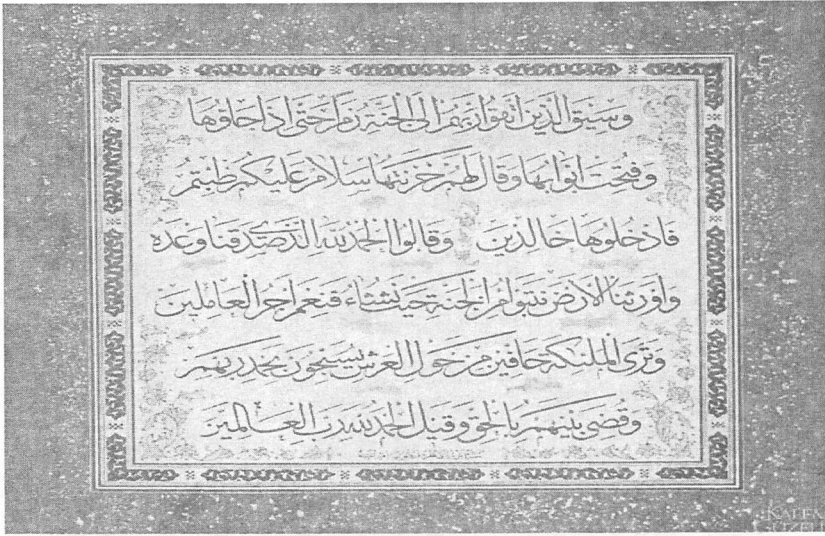 وسيق الذين اتقوا ربهم الى الجنة زمرا حتى اذا جاؤها
وفتحت ابوابها وقال لهم خزنتها سلام عليكم طبتم
فادخلوها خالدين وقالوا الحمد لله الذى صدقنا وعده
واورثنا الارض نتبوأ من الجنة حيث نشاء فنعم اجر العاملين
وترى الملئكة حافين من حول العرش يسبحون بحمد ربهم
وقضى بينهم بالحق وقيل الحمد لله رب العالمين
KALEM
GÜZELİ